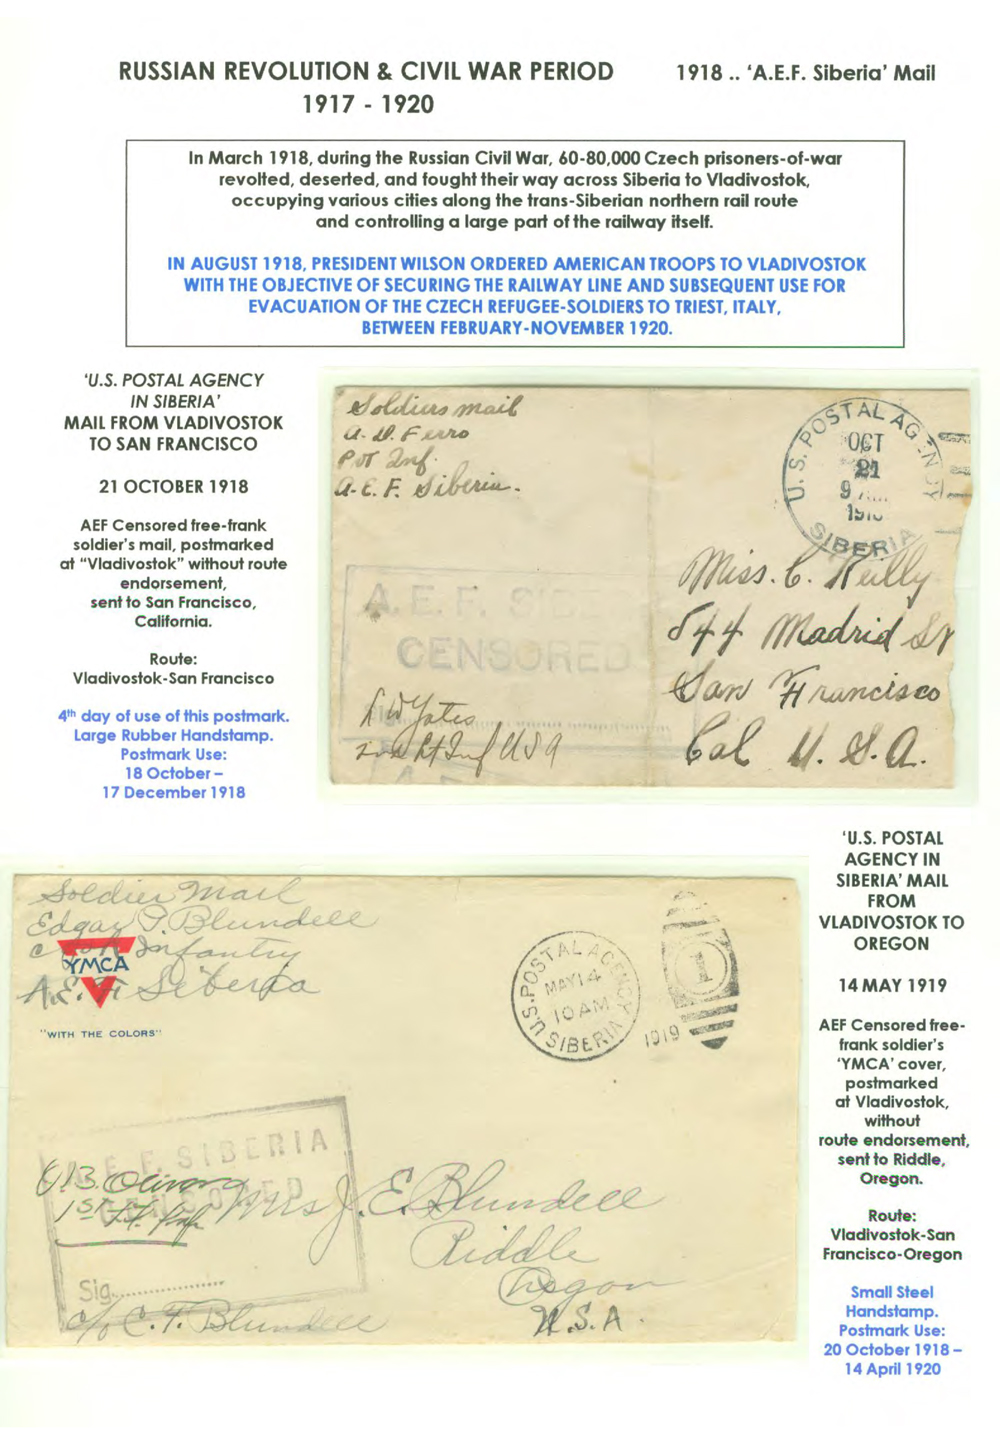 RUSSIAN REVOLUTION & CIVIL WAR PERIOD
1917 - 1920
1918 .. 'A.E.F. Siberia' Mail
In March 1918, during the Russian Civil War, 60-80,000 Czech prisoners-of-war
revolted, deserted, and fought their way across Siberia to Vladivostok,
occupying various cities along the trans-Siberian northern rail route
and controlling a large part of the railway itself.
IN AUGUST 1918, PRESIDENT WILSON ORDERED AMERICAN TROOPS TO VLADIVOSTOK
WITH THE OBJECTIVE OF SECURING THE RAILWAY LINE AND SUBSEQUENT USE FOR
EVACUATION OF THE CZECH REFUGEE-SOLDIERS TO TRIEST, ITALY,
BETWEEN FEBRUARY-NOVEMBER 1920.
'U.S. POSTAL AGENCY
IN SIBERIA'
MAIL FROM VLADIVOSTOK
TO SAN FRANCISCO
21 OCTOBER 1918
AEF Censored free-frank
soldier's mail, postmarked
at "Vladivostok" without route
endorsement,
sent to San Francisco,
California.
Route:
Vladivostok-San Francisco
4th day of use of this postmark.
Large Rubber Handstamp.
Postmark Use:
18 October –
17 December 1918
Soldiers mail
A. D. Ferro
Pvt Inf.
A. E. F. Siberia.
U.S. POSTAL AGENCY
OCT
21
9
SIBERIA
A.E.F.
CENSORED
Yates
Lt Inf USA
Miss. C. Reilly
844 Madrid St
San Francisco
Cal U. S. A.
'U.S. POSTAL
AGENCY IN
SIBERIA' MAIL
FROM
VLADIVOSTOK TO
OREGON
14 MAY 1919
AEF Censored free-
frank soldier's
'YMCA' cover,
postmarked
at Vladivostok,
without
route endorsement,
sent to Riddle,
Oregon.
Route:
Vladivostok-San
Francisco-Oregon
Small Steel
Handstamp.
Postmark Use:
20 October 1918 –
14 April 1920
Soldier Mail
Edgar P. Blundell
Infantry
A.E.F. Siberia
YMCA
"WITH THE COLORS"
U.S. POSTAL AGENCY
MAY 14
10 AM
SIBERIA
1919
1
A.E.F. SIBERIA
CENSORED
1st Lt
Sig.
Mrs J. E. Blundell
Riddle
Oregon
U.S.A.
c/o C. F. Blundell